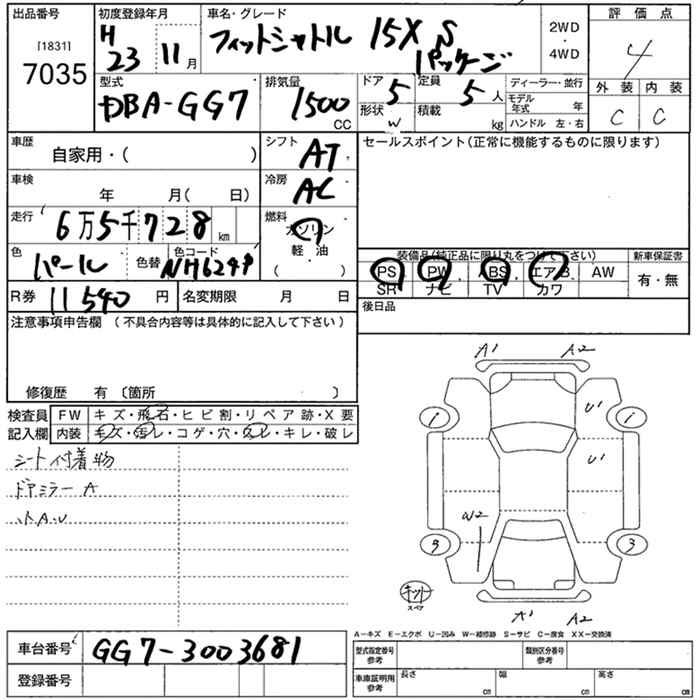 出品番号
[1831]
7035
初度登録年月
H 23 11月
車名・グレード
フィットシャトル 15X S
パッケージ
2WD
・
4WD
評価点
4
外装 内装
C C
型式
DBA-GG7
排気量
1500
CC
ドア 5
定員 5 人
形状 W
積載 kg
ディーラー・並行
モデル年式 年
ハンドル 左・右
車歴
自家用・( )
シフト
AT
セールスポイント(正常に機能するものに限ります)
車検
年 月( 日)
冷房
AC
走行
6万5千728 km
燃料
ガソリン
軽・油
( )
色
パール
色替
色コード
NH624P
装備品(純正品に限り丸をつけて下さい)
PS PW ABS エアB AW
SR ナビ TV カワ
新車保証書
有・無
R券 11540 円
名変期限 月 日
後日品
注意事項申告欄 (不具合内容等は具体的に記入して下さい)
修復歴 有 〔箇所 〕
検査員
記入欄
FW キズ・飛石・ヒビ割・リペア跡・X要
内装 キズ・汚レ・コゲ・穴・スレ・キレ・破レ
シート付着物
ドアミラー A
A1 A2
U1
U1
W2
9 3
キット
スペア
A1 A2
A-キズ E-エクボ U-凹み W-補修跡 S-サビ C-腐食 XX-交換済
車台番号 GG7-3003681
登録番号
型式指定番号
参考
類別区分番号
参考
車庫証明用
参考
長さ cm
幅 cm
高さ cm